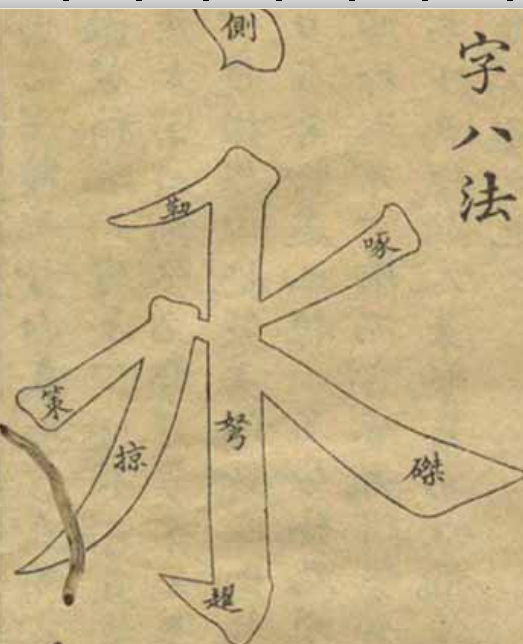 字八法
側
勒
啄
策
弩
掠
磔
趯